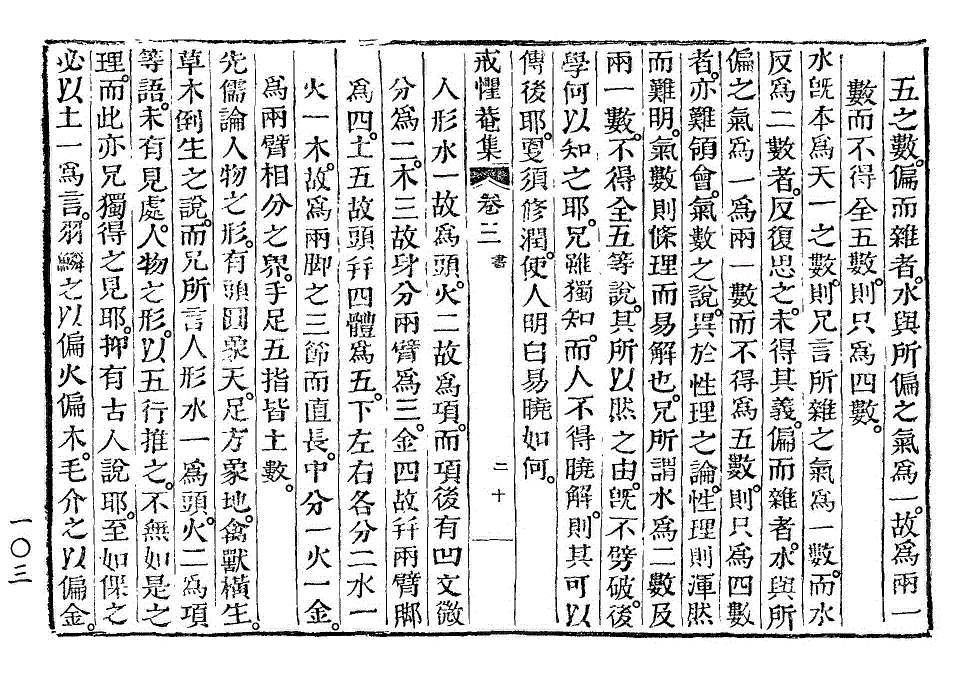 五之數。偏而雜者。水與所偏之氣爲一。故爲兩一
數而不得全五數。則只爲四數。
水旣本爲天一之數。則兄言所雜之氣爲一數。而水
反爲二數者。反復思之。未得其義。偏而雜者。水與所
偏之氣爲一爲兩一數而不得爲五數。則只爲四數
者。亦難領會。氣數之說。異於性理之論。性理則渾然
而難明。氣數則條理而易解也。兄所謂水爲二數及
兩一數。不得全五等說。其所以然之由。旣不劈破。後
學何以知之耶。兄雖獨知。而人不得曉解。則其可以
傳後耶。更須修潤。使人明白易曉如何。
戒懼菴集 卷二 書 二十
人形水一故爲頭。火二故爲項。而項後有凹文微
分爲二。木三故身分兩臂爲三。金四故幷兩臂脚
爲四。土五故頭幷四體爲五。下左右各分二水一
火一木。故爲兩脚之三節而直長。中分一火一金。
爲兩臂相分之界。手足五指皆土數。
先儒論人物之形。有頭圓象天。足方象地。禽獸橫生。
草木倒生之說。而兄所言人形水一爲頭。火二爲項
等語。未有見處。人物之形。以五行推之。不無如是之
理。而此亦兄獨得之見耶。抑有古人說耶。至如倮之
必以土一爲言。羽鱗之以偏火偏木。毛介之以偏金。
一〇三